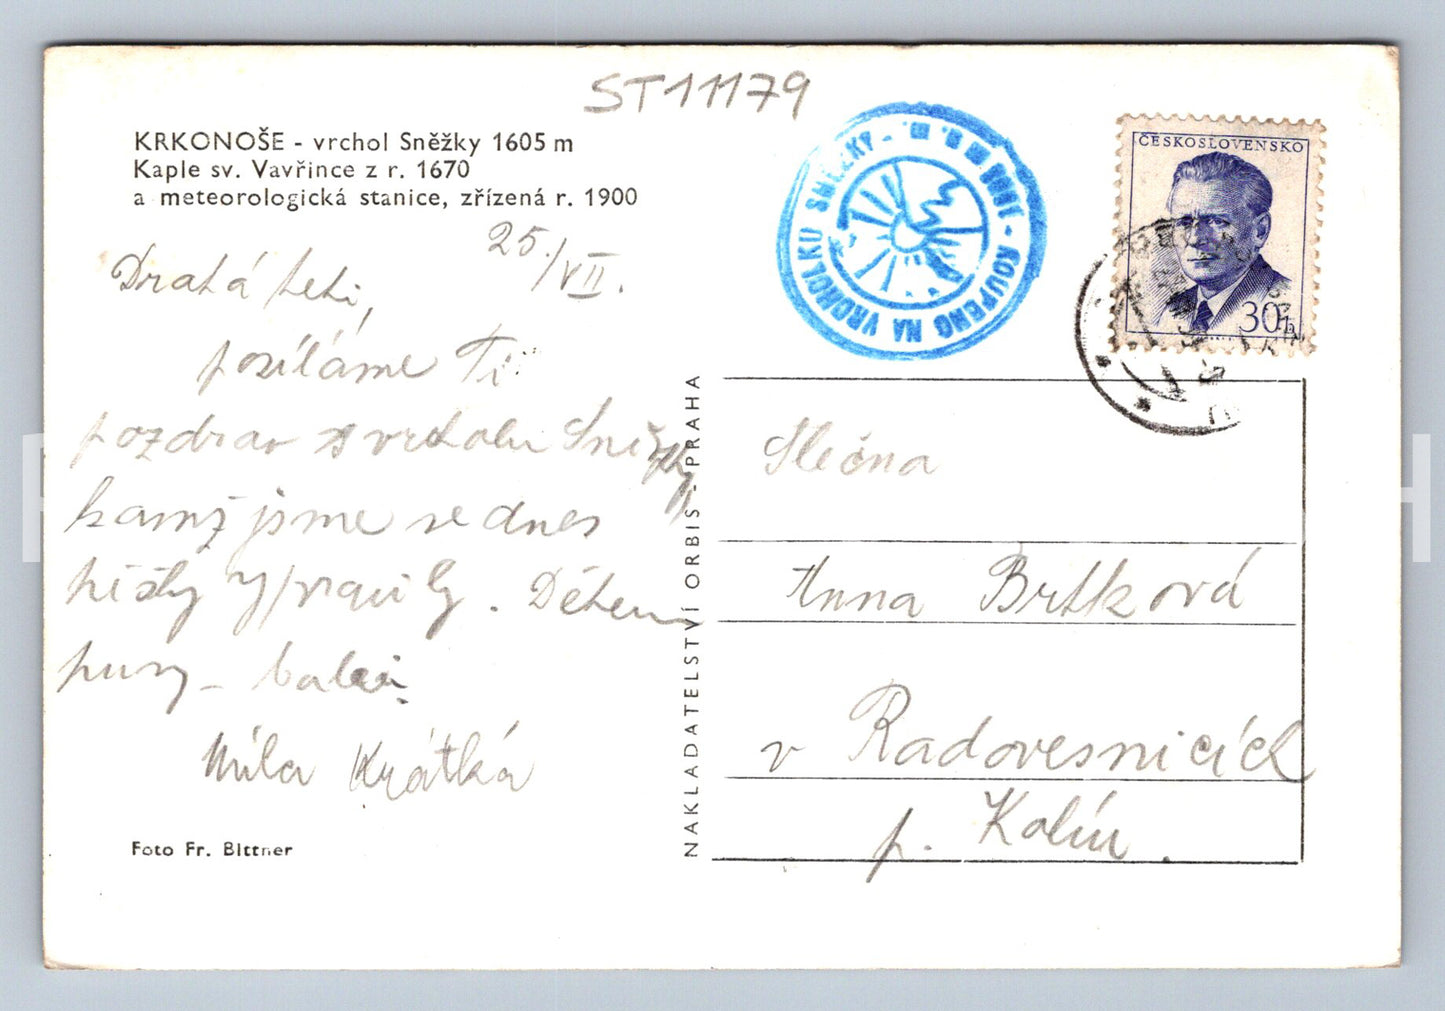 ST11179
KRKONOŠE - vrchol Sněžky 1605 m
Kaple sv. Vavřince z r. 1670
a meteorologická stanice, zřízená r. 1900
25./VII.
Drahá teti,
posíláme Ti
pozdrav s vrcholu Sněžky,
kamž jsme se dnes
pěšky vypravily. Dětem
pusy –
Míla Krátká
Foto Fr. Bittner
NAKLADATELSTVÍ ORBIS, PRAHA
KOUPENO NA VRCHOLKU SNĚŽKY -
ČESKOSLOVENSKO
30 h
Slečna
Anna Brtková
v Radovesnicích
p. Kolín.